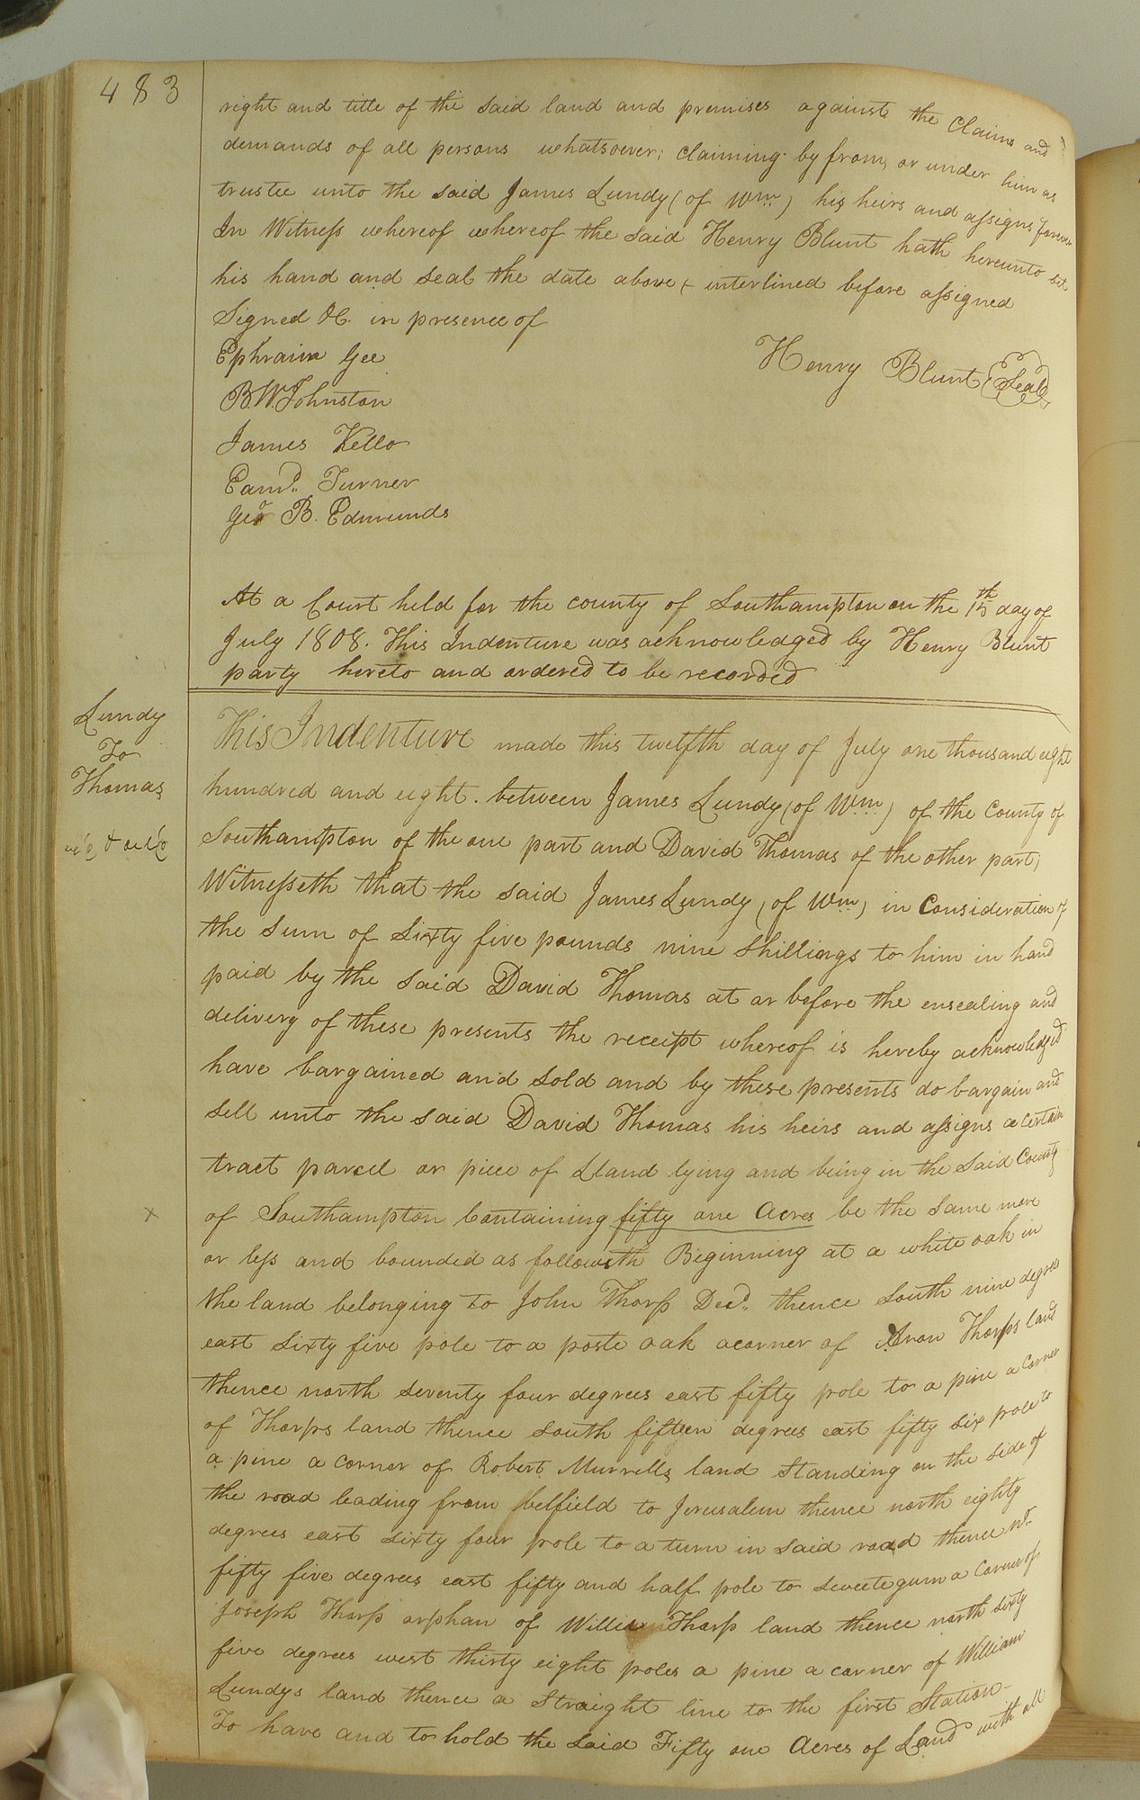 483
right and title of the said land and premises against the Claims and
demands of all persons whatsoever; claiming by from, or under him as
trustee unto the said James Lundy (of Wm) his heirs and assigns forever
In Witness whereof whereof the said Henry Blunt hath hereunto set
his hand and seal the date above interlined before assigned
Signed &C. in presence of
Ephraim Gee
Henry Blunt (Seal)
B.W Johnston
James Kello
Edmd. Turner
Geo. B. Edmunds
At a Court held for the county of Southampton on the 15th day of
July 1808. This Indenture was acknowledged by Henry Blunt
party hereto and ordered to be recorded
Lundy
To
Thomas
This Indenture made this twelfth day of July one thousand eight
hundred and eight. between James Lundy (of Wm) of the County of
Southampton of the one part and David Thomas of the other part,
Witnesseth that the said James Lundy (of Wm) in Consideration of
the sum of Sixty five pounds nine shillings to him in hand
paid by the said David Thomas at or before the ensealing and
delivery of these presents the receipt whereof is hereby acknowledged
have bargained and sold and by these presents do bargain and
sell unto the said David Thomas his heirs and assigns a certain
tract parcel or piece of Lland lying and being in the said County
x
of Southampton Containing fifty one Acres be the same more
or less and bounded as followeth Beginning at a white oak in
the land belonging to John Thorp Decd. thence South nine degrees
east sixty five pole to a poste oak acorner of Aron Thorps land
thence north seventy four degrees east fifty pole to a pine a Corner
of Thorps land thence south fifteen degrees east fifty six pole to
a pine a corner of Robert Murrells land standing on the side of
the road leading from belfield to Jerusalem thence north eighty
degrees east sixty four pole to a turn in said road thence No.
fifty five degrees east fifty and half pole to sweetegum a Corner of
Joseph Thorp orphan of William Thorp land thence north sixty
five degrees west thirty eight poles a pine a corner of William
Lundys land thence a Straight line to the first Station-
To have and to hold the said Fifty one Acres of Land with all